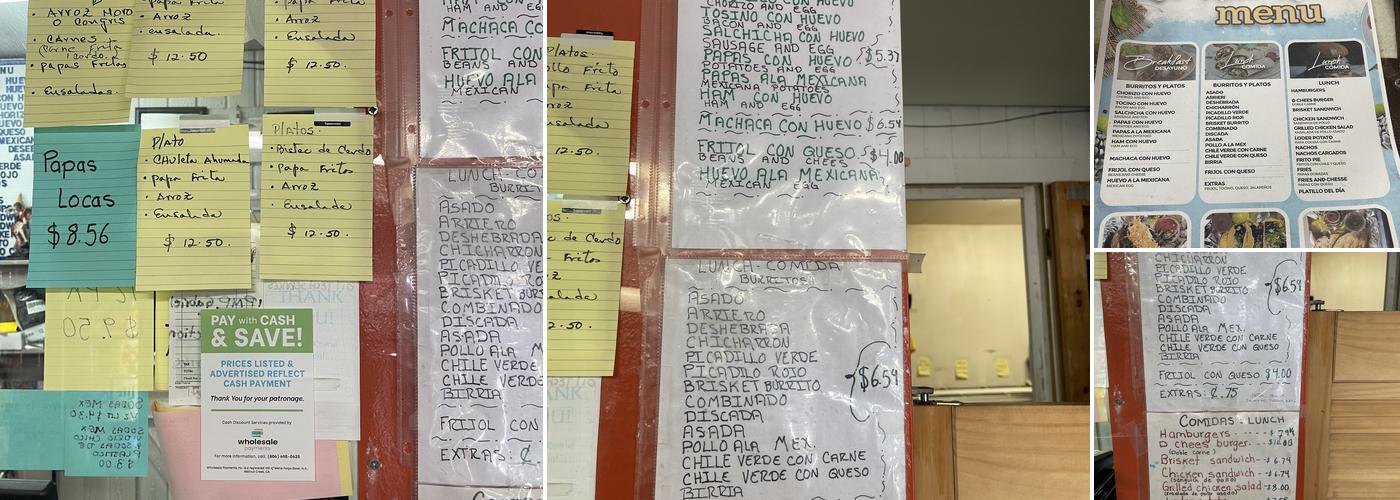 Arroz Moro
o Congris
• CArnes
Carne Frita
• Papas Fritas
• Ensaladas.
• Papa Frita
• Arroz
• ensalada.
$ 12.50
• Papa Fritas
• Arroz
• Ensalada
$ 12.50.
Papas
Locas
$8.56
Plato
• Chuleta Ahumada
• Papa Frita
• Arroz
• Ensalada
$ 12.50.
Platos.
• Bistec de Cerdo
• Papa Fritos
• Arroz
• Ensalada
$ 12.50.
PAY with CASH
& SAVE!
PRICES LISTED &
ADVERTISED REFLECT
CASH PAYMENT
Thank You for your patronage.
Cash Discount Services provided by
wholesale
payments
For more information, call: (806) 698-0625
THANK
HAM AND EG
MACHACA CO
FRIJOL CON
BEANS AND
HUEVO ALA
MEXICAN
LUNCH-CO
BURRIT
ASADO
ARRIERO
DESHEBRADA
CHICHARRON
PICADILLO VE
PICADILLO RO
BRISKET BUR
COMBINADO
DISCADA
ASADA
POLLO ALA M
CHILE VERDE
CHILE VERDE
BIRRIA
FRIJOL CON
EXTRAS: ₵
Platos.
ollo Frito
apa Frita
rroz
nsalada
12.50
os.
c de Cerdo
Fritos
alada
2.50.
CHORIZO AND EGG
TOSINO CON HUEVO
BACON AND EGG
SALCHICHA CON HUEVO
SAUSAGE AND EGG
PAPAS CON HUEVO
POTATOES AND EGG
PAPAS ALA MEXICANA
MEXICANA POTATOES
HAM CON HUEVO
HAM AND EGG
$5.37
MACHACA CON HUEVO $6.54
FRIJOL CON QUESO $4.00
BEANS AND CHEES
HUEVO ALA MEXICANA
MEXICAN EGG
LUNCH-COMIDA
BURRITOS
ASADO
ARRIERO
DESHEBRADA
CHICHARRON
PICADILLO VERDE
PICADILLO ROJO
BRISKET BURRITO
COMBINADO
DISCADA
ASADA
POLLO ALA MEX.
CHILE VERDE CON CARNE
CHILE VERDE CON QUESO
BIRRIA
$6.54
menu
Breakfast
DESAYUNO
BURRITOS Y PLATOS
CHORIZO CON HUEVO
TOCINO CON HUEVO
SALCHICHA CON HUEVO
PAPAS CON HUEVO
PAPAS A LA MEXICANA
HAM CON HUEVO
MACHACA CON HUEVO
FRIJOL CON QUESO
HUEVO A LA MEXICANA
Lunch
COMIDA
BURRITOS Y PLATOS
ASADO
ARRIERI
DESHEBRADA
CHICHARRÓN
PICADILLO VERDE
PICADILLO ROJO
BRISKET BURRITO
COMBINADO
DISCADA
ASADA
POLLO A LA MEX
CHILE VERDE CON CARNE
CHILE VERDE CON QUESO
BIRRIA
EXTRAS
FRIJOL, TOCINO, QUESO, JALAPEÑOS
Lunch
COMIDA
LUNCH
HAMBURGERS
D CHEES BURGER
BRISKET SANDWICH
CHICKEN SANDWICH
GRILLED CHICKEN SALAD
LODER POTATO
NACHOS
NACHOS CARGADOS
FRITO PIE
FRIES
FRIES AND CHESSE
PLATILLO DEL DÍA
CHICHARRON
PICADILLO VERDE
PICADILLO ROJO
BRISKET BURRITO
COMBINADO
DISCADA
ASADA
POLLO ALA MEX.
CHILE VERDE CON CARNE
CHILE VERDE CON QUESO
BIRRIA
$6.54
FRIJOL CON QUESO $4.00
EXTRAS: ₵.75
COMIDAS - LUNCH
Hamburgers
D chees burger
(Doble carne)
Brisket sandwich - - $6.74
Chicken sandwich - - $6.74
Grilled chicken salad - $8.00